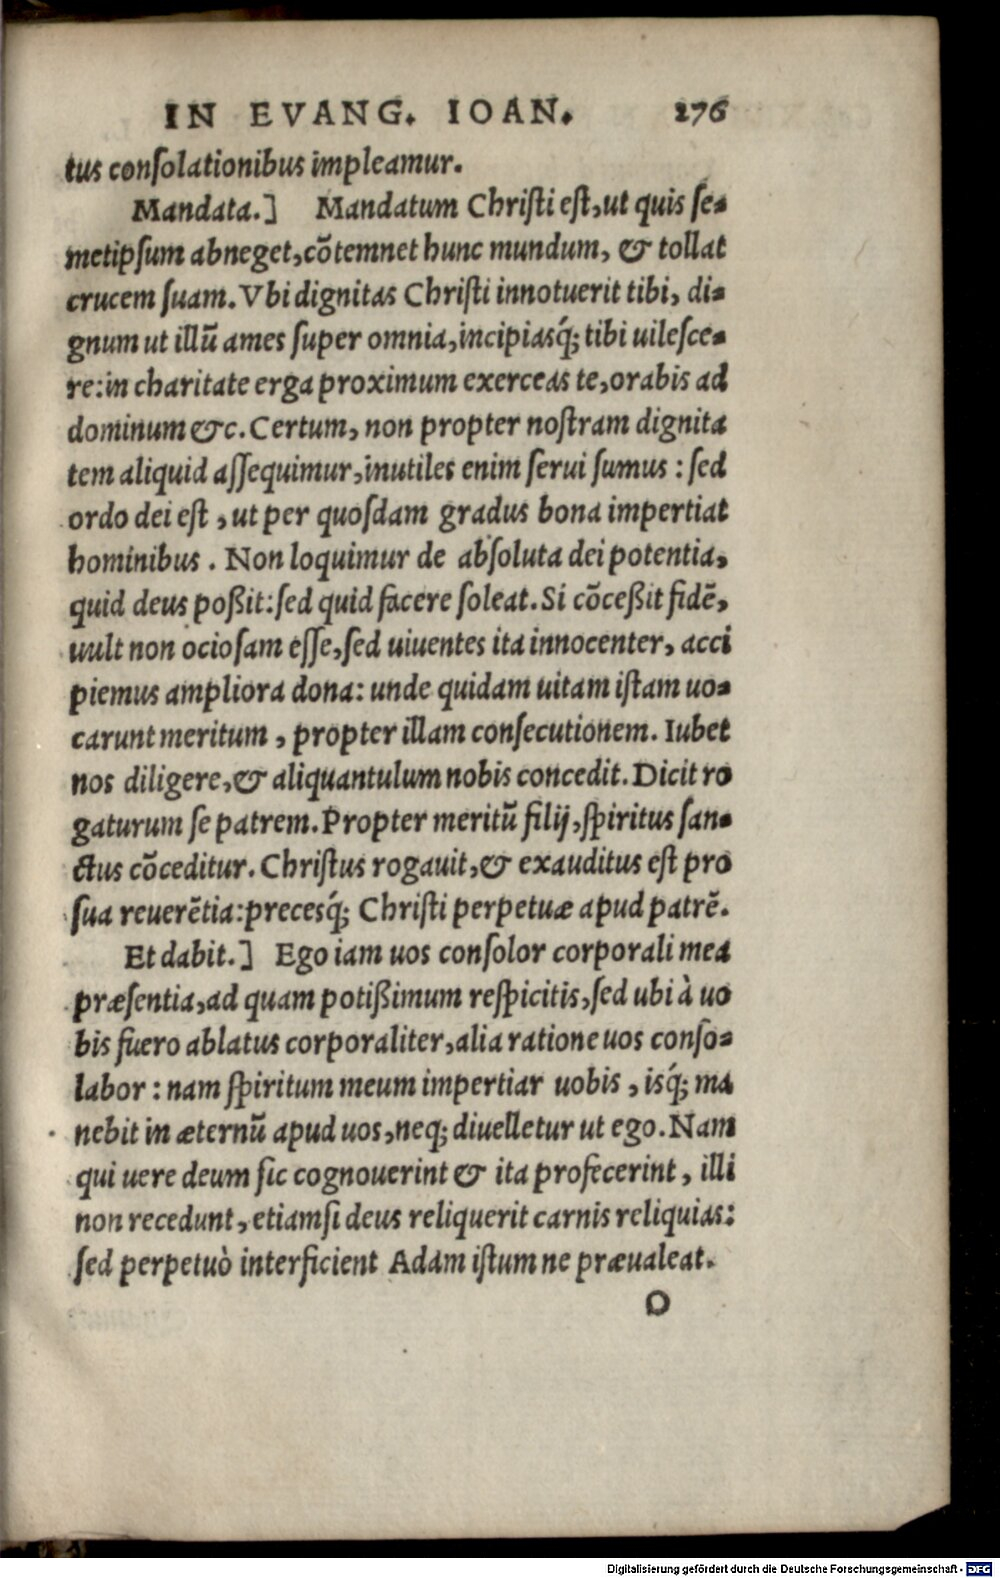 IN EVANG. IOAN. 276
tus conſolationibus impleamur.
Mandata.] Mandatum Chriſti eſt, ut quis ſe-
metipſum abneget, cõtemnet hunc mundum, & tollat
crucem ſuam. Vbi dignitas Chriſti innotuerit tibi, di-
gnum ut illũ ames ſuper omnia, incipiasq́; tibi uileſce-
re: in charitate erga proximum exerceas te, orabis ad
dominum &c. Certum, non propter noſtram dignita
tem aliquid aſſequimur, inutiles enim ſerui ſumus : ſed
ordo dei eſt , ut per quoſdam gradus bona impertiat
hominibus . Non loquimur de abſoluta dei potentia,
quid deus poßit: ſed quid facere ſoleat. Si cõceßit fidẽ,
uult non ocioſam eſſe, ſed uiuentes ita innocenter, acci
piemus ampliora dona: unde quidam uitam iſtam uo-
carunt meritum , propter illam conſecutionem. Iubet
nos diligere, & aliquantulum nobis concedit. Dicit ro
gaturum ſe patrem. Propter meritũ filij, ſpiritus ſan-
ctus cõceditur. Chriſtus rogauit, & exauditus eſt pro
ſua reuerẽtia: precesq́; Chriſti perpetuæ apud patrẽ.
Et dabit.] Ego iam uos conſolor corporali mea
præſentia, ad quam potißimum reſpicitis, ſed ubi à uo
bis fuero ablatus corporaliter, alia ratione uos conſo-
labor : nam ſpiritum meum impertiar uobis , isq́; ma
nebit in æternũ apud uos, neq; diuelletur ut ego. Nam
qui uere deum ſic cognouerint & ita profecerint , illi
non recedunt, etiamſi deus reliquerit carnis reliquias:
ſed perpetuò interficient Adam iſtum ne præualeat.
O
Digitalisierung gefördert durch die Deutsche Forschungsgemeinschaft - DFG